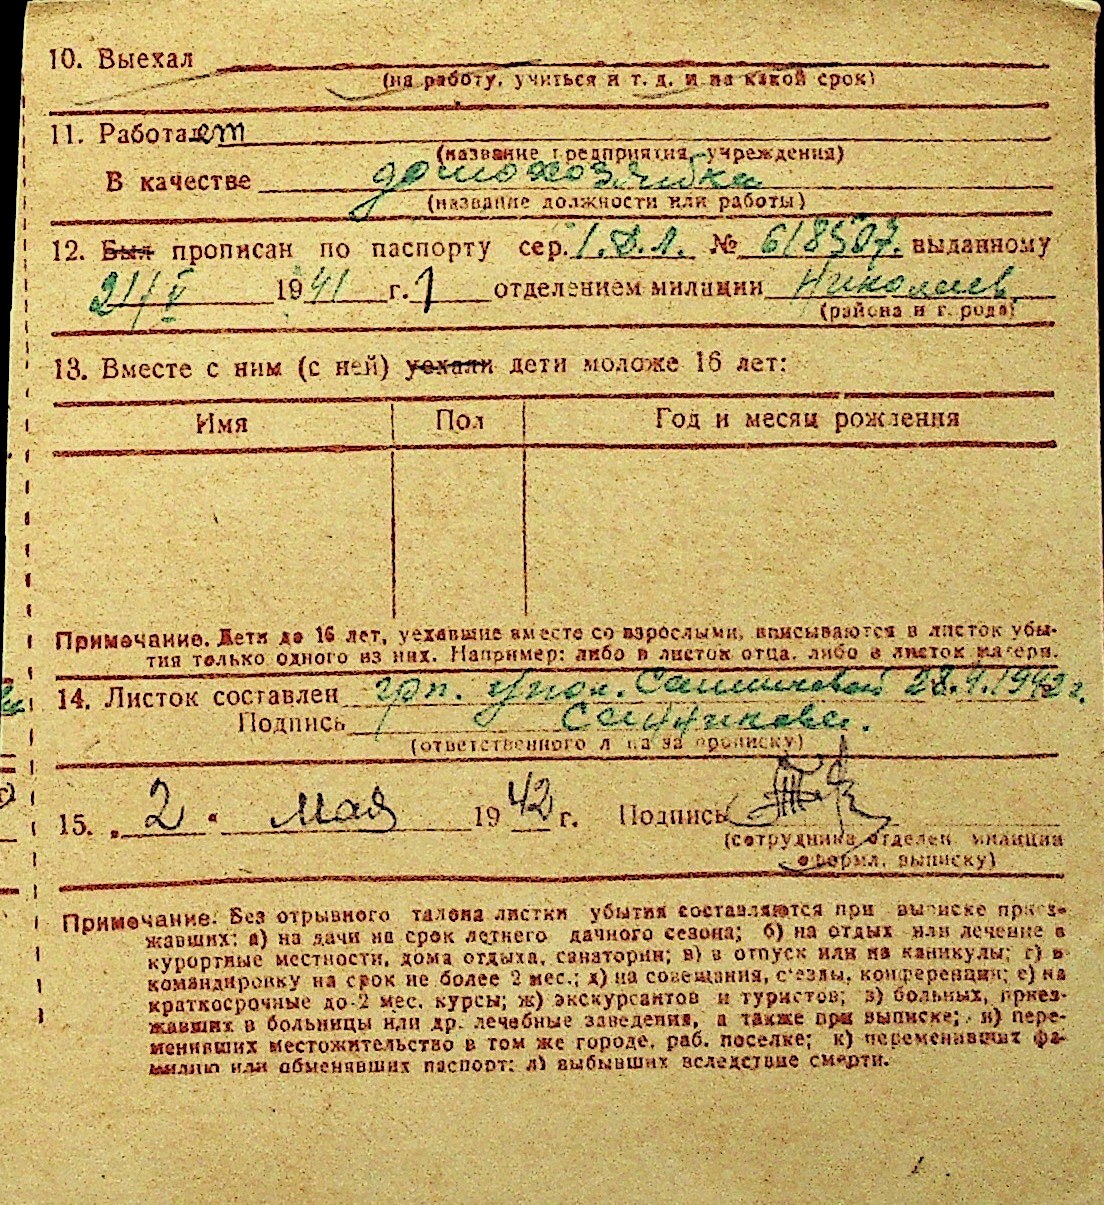 10. Выехал
(на работу, учиться и т. д. и на какой срок)
11. Работает
(название предприятия, учреждения)
В качестве домохозяйка
(название должности или работы)
12. Был прописан по паспорту сер. № 618507. выданному
21/V 1941 г. 1 отделением милиции Николаев.
(района и города)
13. Вместе с ним (с ней) уехали дети моложе 16 лет:
Имя Пол Год и месяц рождения
Примечание. Дети до 16 лет, уехавшие вместе со взрослыми, вписываются в листок убы-
тия только одного из них. Например: либо в листок отца, либо в листок матери.
14. Листок составлен 1942 г.
Подпись
(ответственного лица за прописку)
15. „ 2 “ мая 1942 г. Подпись
(сотрудника отделен. милиции
оформл. выписку)
Примечание. Без отрывного талона листки убытия составляются при выписке приез-
жавших: а) на дачи на срок летнего дачного сезона; б) на отдых или лечение в
курортные местности, дома отдыха, санатории; в) в отпуск или на каникулы; г) в
командировку на срок не более 2 мес.; д) на совещания, съезды, конференции; е) на
краткосрочные до 2 мес. курсы; ж) экскурсантов и туристов; з) больных, приез-
жавших в больницы или др. лечебные заведения, а также при выписке; и) пере-
менивших местожительство в том же городе, раб. поселке; к) переменивших фа-
милию или обменявших паспорт; л) выбывших вследствие смерти.